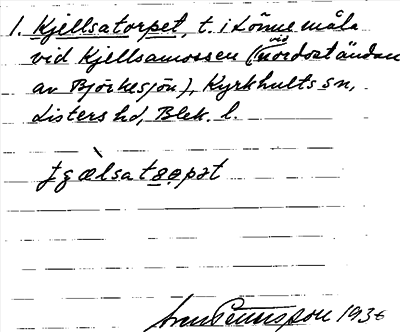 1. Kjellsatorpet, t. i Lönnemåla
vid Kjellsamossen (vid nordoständan
av Björkesjön), Kyrkhults sn,
Listers hd, Blek. l.
1936